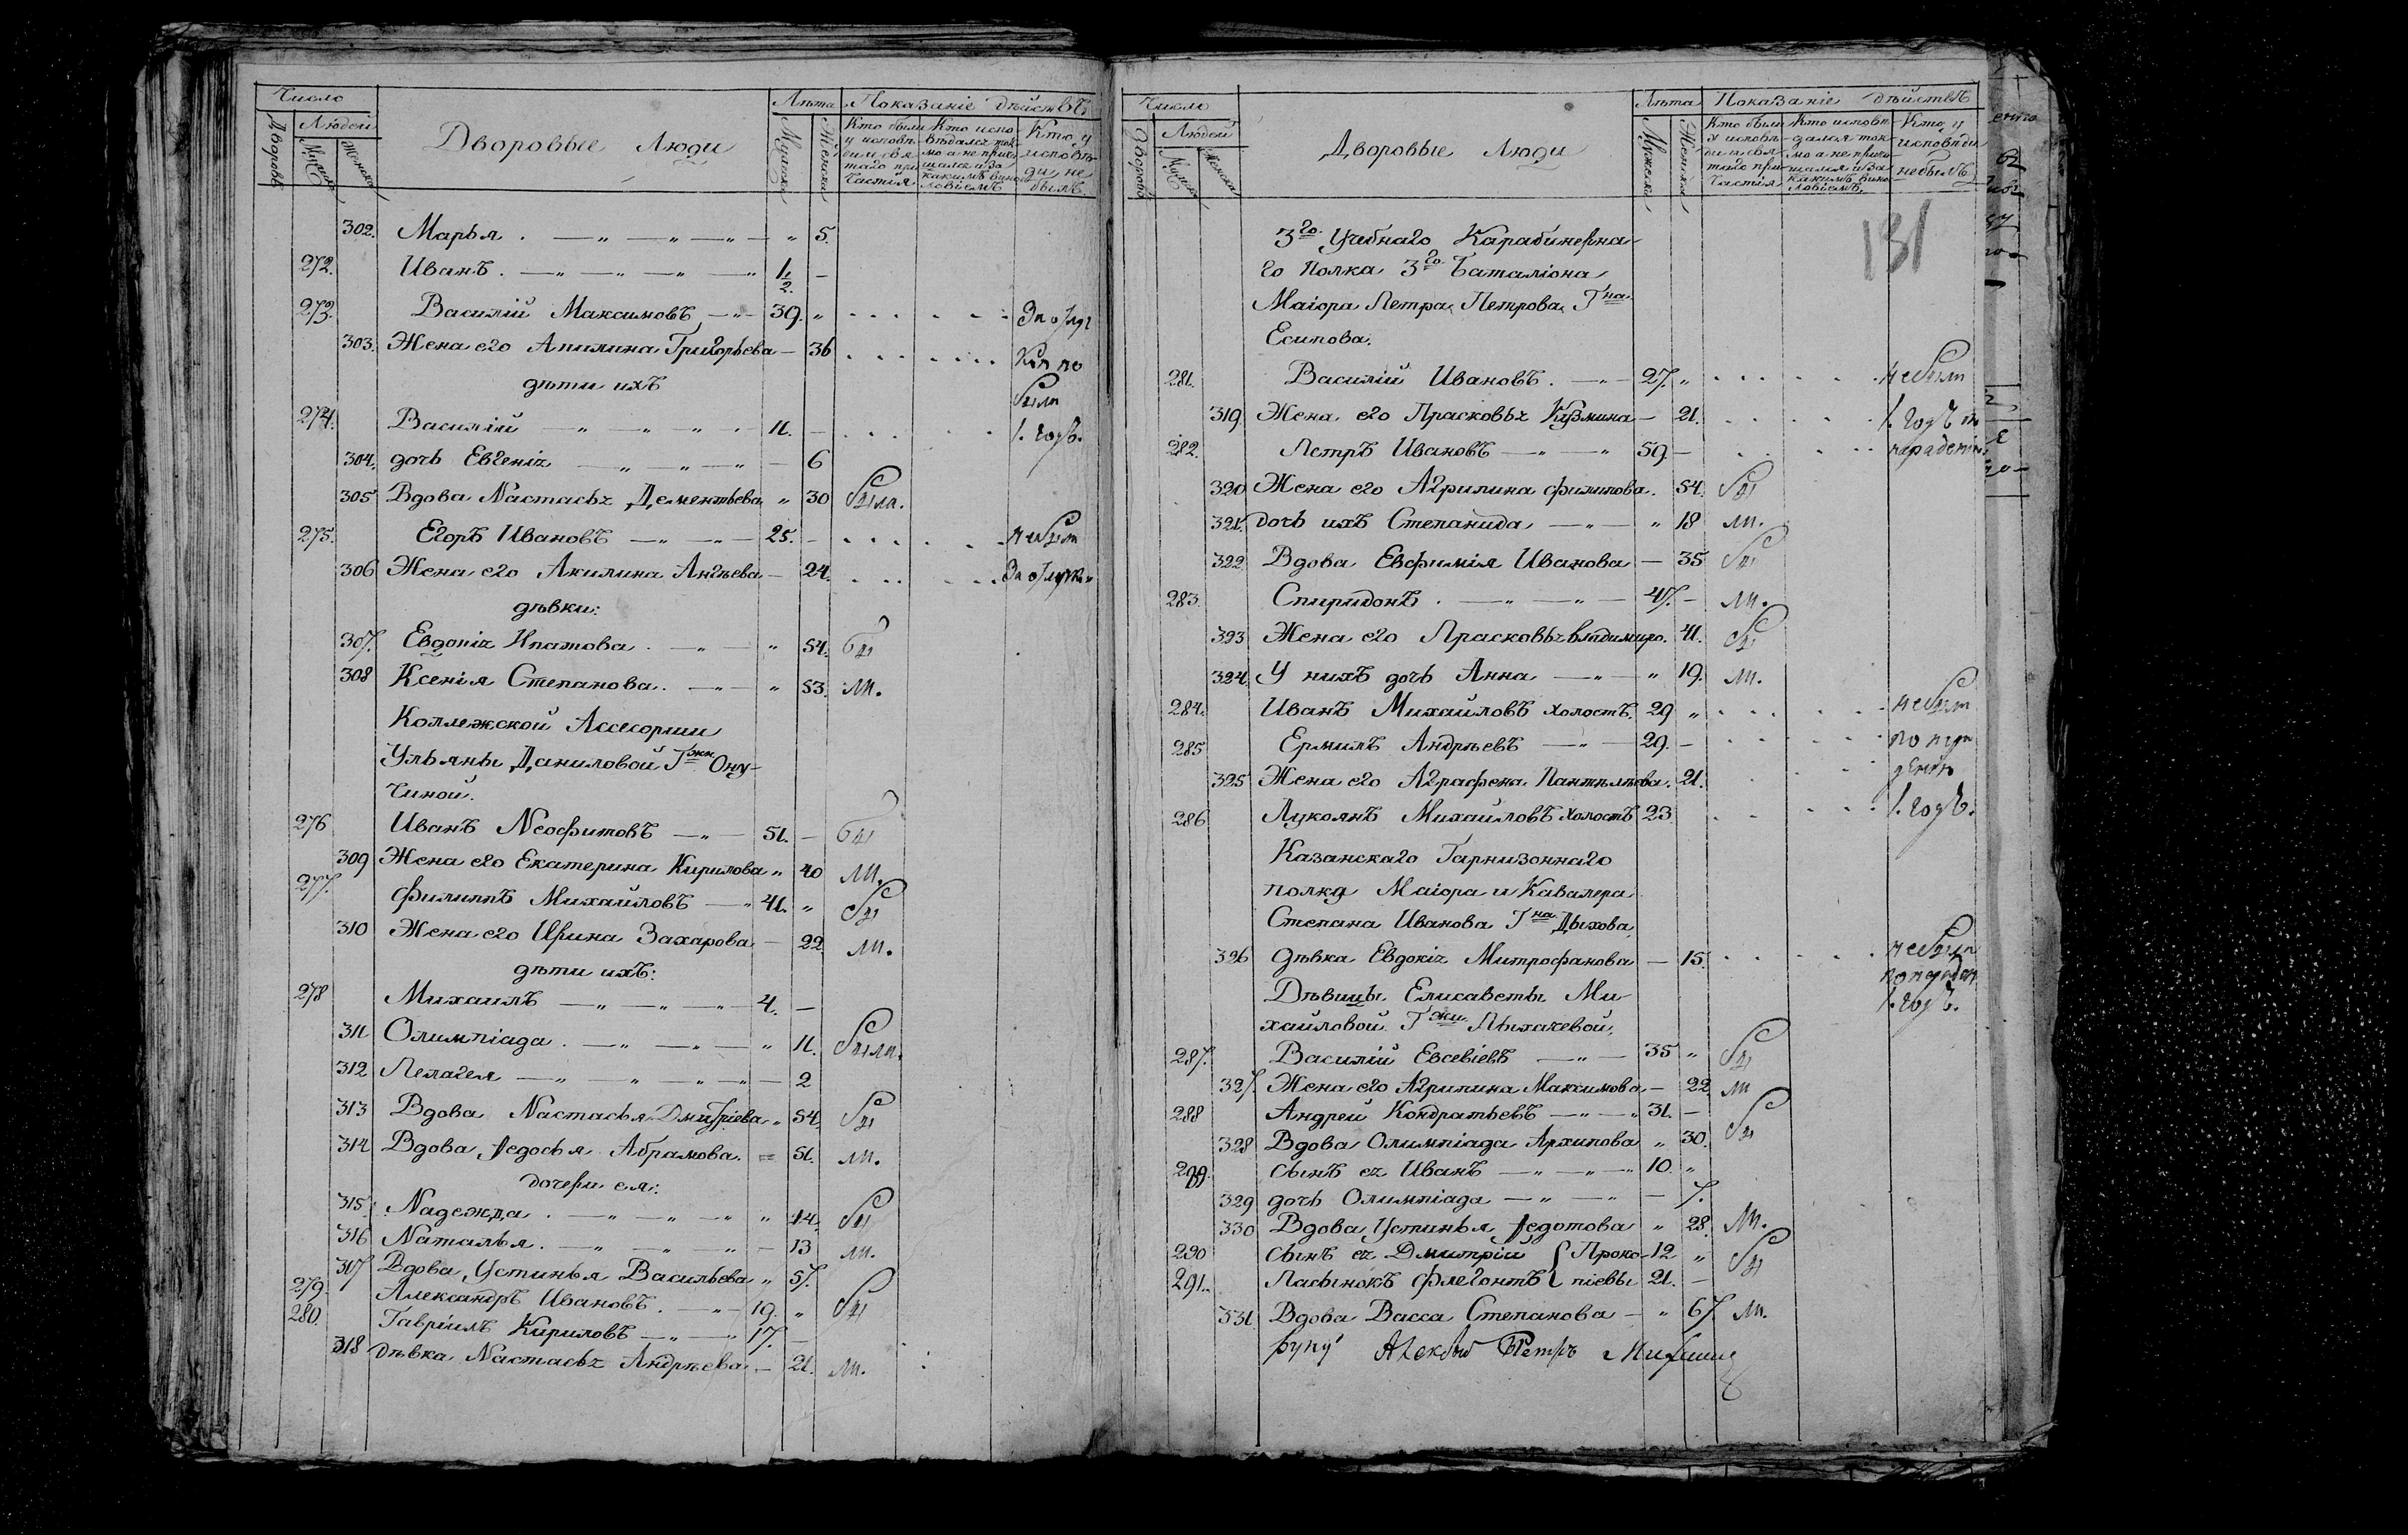 Число
Лѣта Показаніе дѣйствъ
Дворовъ Людей
Дворовые Люди
Мужеска Женска
Мужеска Женска
Кто были у исповѣди и святаго причастія
Кто исповѣдался токмо а не причащался и за какимъ винословіемъ
Кто у исповѣди не былъ
302. Марья . — „ — „ — „ — „ 5.
272. Иванъ . — „ — „ — „ — „ 1/2. —
273. Василій Максимовъ — „ — 39. „
303. Жена его Акилина Григорьева — 36
дѣти ихъ
были
274. Василій — „ — „ — „ — 11. — 1. годъ.
304. дочь Евгенія — „ — „ — „ — 6
305 Вдова Настасья Дементьева „ 30 была.
275. Егоръ Ивановъ — „ — „ — 25. — небыли
306 Жена его Акилина Ангѣева — 24.
дѣвки:
307. Евдокія Ипатова . — „ — „ 54. бы
308 Ксенія Степанова . — „ — „ 53. ли.
Коллежской Ассесорши
Ульяны Даниловой Гжи Ону-
чиной.
276 Иванъ Неофитовъ — „ — 51. — бы
309 Жена его Екатерина Кирилова „ 40 ли.
277. Филиппъ Михайловъ — „ 41. „ бы
310 Жена его Ирина Захарова — 22 ли.
дѣти ихъ:
278 Михаилъ — „ — „ — „ — 4. —
311 Олимпіада . — „ — „ — „ 11. была.
312 Пелагея — „ — „ — „ — „ — 2
313 Вдова Настасья Дмитріева „ 54. бы
314 Вдова Федосья Абрамова. = 51. ли.
дочери ея:
315. Надежда . — „ — „ — „ „ 14. бы
316 Наталья . — „ — „ — „ — 13 ли.
317 Вдова Устинья Васильева „ 57.
279. Александръ Ивановъ . — „ — 19. „ бы
280. Гавріилъ Кириловъ — „ — „ 17. —
318 дѣвка Настасья Андрѣева — 21. ли.
Число
Лѣта Показаніе дѣйствъ
Дворовъ Людей
Дворовые Люди
Мужеска Женска
Мужеска Женска
Кто были у исповѣди и святаго причастія
Кто исповѣдался токмо а не причащался и за какимъ винословіемъ
Кто у исповѣди небылъ
131
3го Учебнаго Карабинерна-
го Полка 3го Баталіона
Маіора Петра Петрова Гна
Есипова.
281. Василій Ивановъ . — „ — 27. „ небыли
319 Жена его Прасковья Кузмина — 21. 1. годъ
282. Петръ Ивановъ — „ — „ 59 —
320 Жена его Агрипина Филипова. 54. бы
321. дочь ихъ Степанида — „ — „ 18 ли.
322. Вдова Евфимія Иванова — 35 бы
283. Спиридонъ . — „ — „ — 47. — ли.
323 Жена его Прасковья Владимиро. 41. бы
324. У нихъ дочь Анна — „ — „ 19. ли.
284. Иванъ Михайловъ холостъ. 29 „ небыли
285 Ермилъ Андрѣевъ — „ — 29. —
325 Жена его Аграфена Пантѣлѣева. 21.
286 Лукоянъ Михайловъ холостъ 23. 1. годъ.
Казанскаго Гарнизоннаго
полка Маіора и Кавалера
Степана Иванова Гна Дыхова
326 дѣвка Евдокія Митрофанова — 15. небыла
1. годъ.
Дѣвицы Елисаветы Ми-
хайловой Гжи Лыхачевой.
287. Василій Евсевіевъ — „ — 35 „ бы
327. Жена его Агрипина Максимова — 22 ли
288 Андрей Кондратьевъ — „ — „ 31. —
328 Вдова Олимпіада Архипова „ 30. бы
289. сынъ ея Иванъ — „ — „ — „ 10. „
329 дочь Олимпіада — „ — „ — 7.
330 Вдова Устинья Федотова „ 28. ли.
290 сынъ ея Дмитрій { Проко- 12. „ бы
291. Пасынокъ Флегонтъ { піевы 21. —
331. Вдова Васса Степанова — „ 67. ли.
Петръ